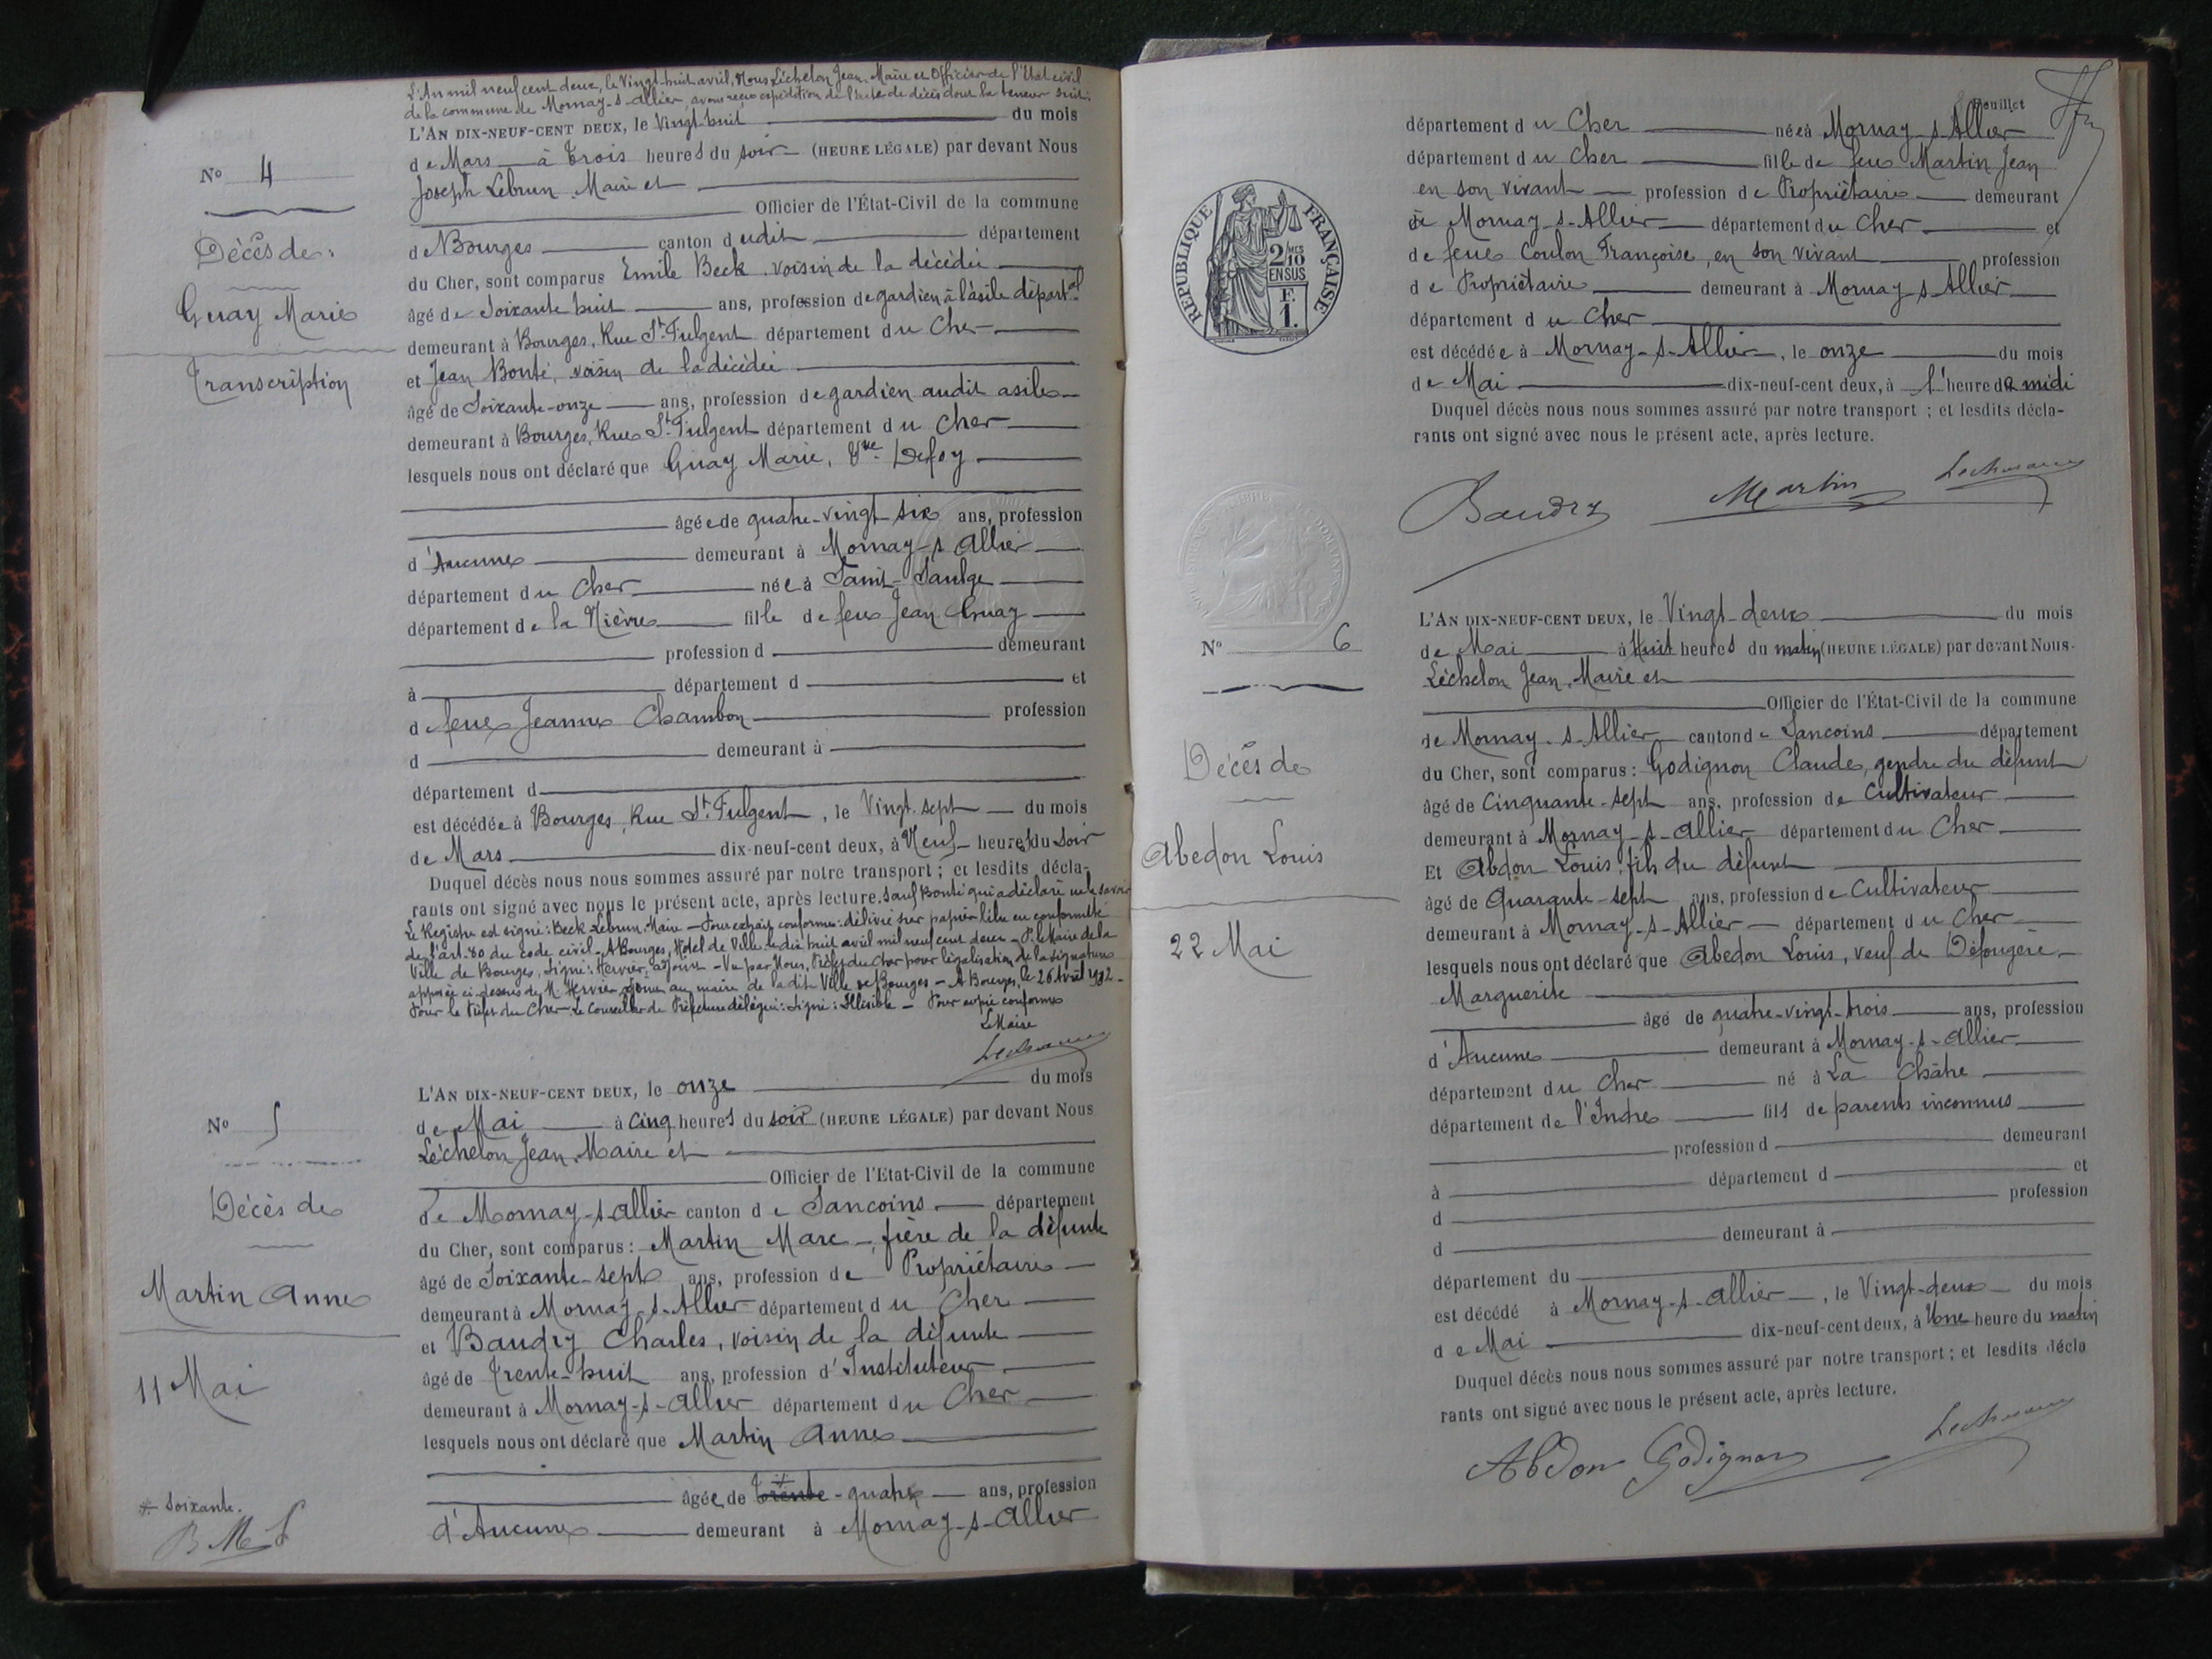 L'An mil neuf cent deux, le Vingt-huit avril, Nous Léchelon Jean, Maire et Officier de l'Etat civil
de la commune de Mornay-s-Allier, avons reçu expédition de l'acte de décès dont la teneur suit:
L'AN DIX-NEUF-CENT DEUX, le Vingt-huit du mois
de Mars à Trois heures du soir (HEURE LÉGALE) par devant Nous
Joseph Lebrun, Maire et
Officier de l'État-Civil de la commune
de Bourges canton dudit département
du Cher, sont comparus Emile Beck voisin de la décédée
âgé de Soixante huit ans, profession de gardien à l'asile départal
demeurant à Bourges, Rue St Fulgent département du Cher
et Jean Bonté, voisin de la décédée
âgé de Soixante-onze ans, profession de gardien audit asile
demeurant à Bourges, Rue St Fulgent département du Cher
lesquels nous ont déclaré que Guay Marie, Vve Defoy
âgée de quatre-vingt six ans, profession
d'Aucune demeurant à Mornay-s-Allier
département du Cher née à Saint-Saulge
département de la Nièvre fille de feu Jean Guay
profession d demeurant
à département d et
d feue Jeanne Chambon profession
d demeurant à
département d
est décédée à Bourges, Rue St Fulgent, le Vingt-sept du mois
de Mars dix-neuf-cent deux, à Neuf heures du soir
Duquel décès nous nous sommes assuré par notre transport ; et lesdits décla-
rants ont signé avec nous le présent acte, après lecture. sauf Bonté qui a déclaré ne le savoir
Le Registre est signé: Beck Lebrun, Maire - Pour extrait conforme: délivré sur papier libre en conformité
de l'art. 80 du code civil - A Bourges, Hôtel de Ville le dix huit avril mil neuf cent deux - P. le Maire de la
Ville de Bourges, signé: Hervier, adjoint - Vu par Nous, Préfet du Cher pour légalisation de la signature
apposée ci-dessus de M. Hervier adjoint au maire de la dite Ville de Bourges - A Bourges, le 26 Avril 1902 -
Pour le Préfet du Cher - Le Conseiller de Préfecture délégué: signé: Illisible - Pour copie conforme
Le Maire
No 4
Décès de:
Guay Marie
Transcription
L'AN DIX-NEUF-CENT DEUX, le onze du mois
de Mai à Cinq heures du soir (HEURE LÉGALE) par devant Nous
Léchelon Jean, Maire et
Officier de l'Etat-Civil de la commune
de Mornay-s-Allier canton de Sancoins département
du Cher, sont comparus: Martin Marc, frère de la défunte
âgé de Soixante-sept ans, profession de Propriétaire
demeurant à Mornay-s-Allier département du Cher
et Baudry Charles, voisin de la défunte
âgé de Trente-huit ans, profession d'Instituteur
demeurant à Mornay-s-Allier département du Cher
lesquels nous ont déclaré que Martin Anne
âgée de Trente-quatre ans, profession
d'Aucune demeurant à Mornay-s-Allier
No 5
Décès de
Martin Anne
11 Mai
* Soixante.
B M L
Feuillet
département du Cher née à Mornay-s-Allier
département du Cher fille de feu Martin Jean
en son vivant profession de Propriétaire demeurant
à Mornay-s-Allier département du Cher et
de feue Coulon Françoise, en son vivant profession
de Propriétaire demeurant à Mornay-s-Allier
département du Cher
est décédée à Mornay-s-Allier, le onze du mois
de Mai dix-neuf-cent deux, à l'heure de midi
Duquel décès nous nous sommes assuré par notre transport ; et lesdits décla-
rants ont signé avec nous le présent acte, après lecture.
Baudry Martin
RÉPUBLIQUE FRANÇAISE
2/10 MES
EN SUS
F.
1.
L'AN DIX-NEUF-CENT DEUX, le Vingt-deux du mois
de Mai à Huit heures du matin (HEURE LÉGALE) par devant Nous
Léchelon Jean, Maire et
Officier de l'État-Civil de la commune
de Mornay-s-Allier canton de Sancoins département
du Cher, sont comparus: Godignon Claude, gendre du défunt
âgé de Cinquante-sept ans, profession de Cultivateur
demeurant à Mornay-s-Allier département du Cher
Et Abdon Louis, fils du défunt
âgé de Quarante-sept ans, profession de Cultivateur
demeurant à Mornay-s-Allier département du Cher
lesquels nous ont déclaré que Abedon Louis, veuf de Défougère
Marguerite
âgé de quatre-vingt-trois ans, profession
d'Aucune demeurant à Mornay-s-Allier
département du Cher né à La Châtre
département de l'Indre fils de parents inconnus
profession d demeurant
à département d et
d profession
d demeurant à
département du
est décédé à Mornay-s-Allier, le Vingt-deux du mois
de Mai dix-neuf-cent deux, à Une heure du matin
Duquel décès nous nous sommes assuré par notre transport ; et lesdits décla
rants ont signé avec nous le présent acte, après lecture.
Abdon Godignon
No 6
Décès de
Abedon Louis
22 Mai